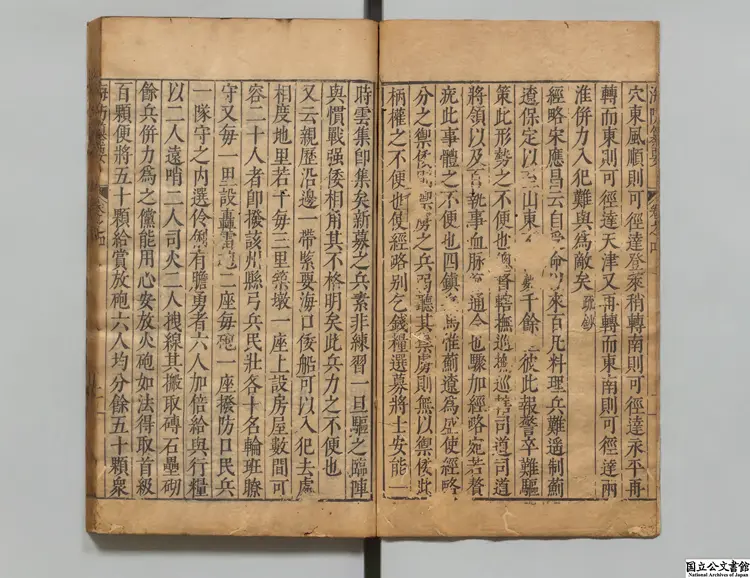 海防纂要
穴東風順則可徑達登萊稍轉南則可徑達永平再
轉而東則可徑達天津又再轉而東南則可徑達兩
淮併力入犯難與為敵矣 疏鈔
經略宋應昌云自命以來百凡料理兵難遥制薊
遼保定以山東千餘彼此報警卒難驅
策此形勢之不便也督轄撫巡撫巡轄司道司道
將領以及百執事血脉通今也驟加經略宛若贅
疣此事體之不便也四鎮馬惟薊遼為盛使經略
分之禦倭禦虜之兵弱聽其禦虜則無以禦倭此
柄權之不便也使經略別乞錢糧選募將士安能一
時雲集即集矣新募之兵素非練習一旦驅之臨陣
與慣戰强倭相角其不格明矣此兵力之不便也
又云親歷沿邊一帶緊要海口倭船可以入犯去處
相度地里若干每三里築墩一座上設房屋數間可
容二十人者即撥該州縣弓兵民壯各十名輪班瞭
守又每一里設轟雷砲二座每砲一座撥防口民兵
一隊守之内選伶俐有膽勇者六人加倍給與行糧
以二人遠哨二人司火二人拽線其搬取磚石壘砌
餘兵併力為之儻能用心安放火砲如法得取首級
百顆便將五十顆給賞放砲六人均分餘五十顆衆
海防纂要
卷之四
国立公文書館
National Archives of Japan